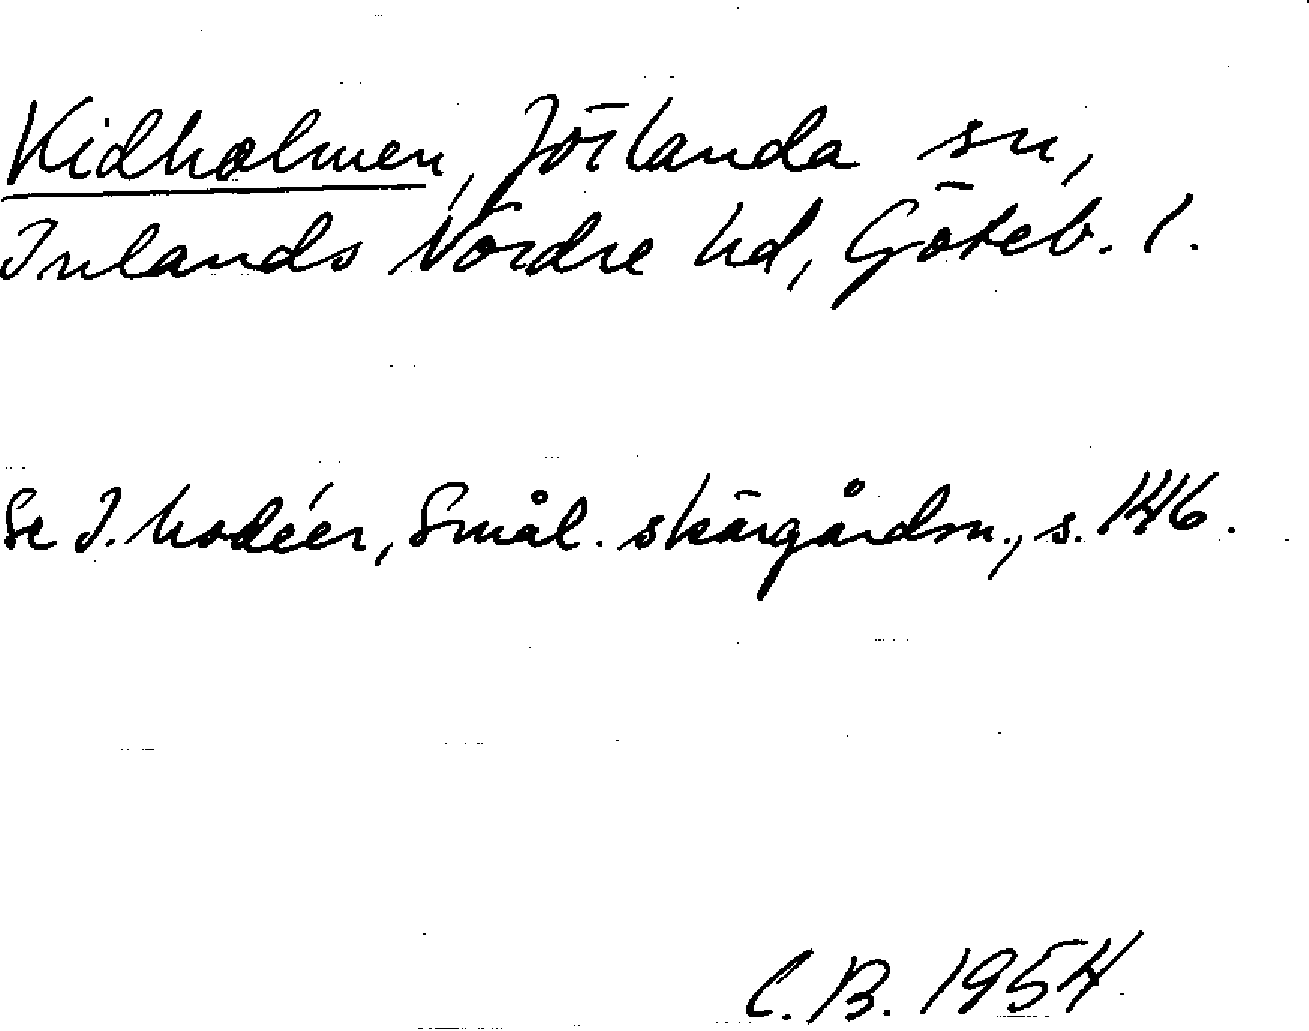 Kidholmen, Jörlanda sn,
Inlands Nordre hd, Göteb. l.
Se I. Modéer, Smål. skärgårdsn., s. 146.
C.B. 1954